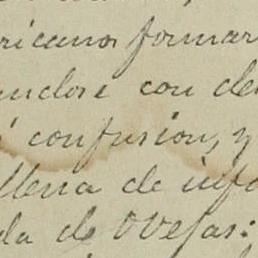 ricanos formar
ndose con de
confusion, y
llena de info
da de Ovejas: